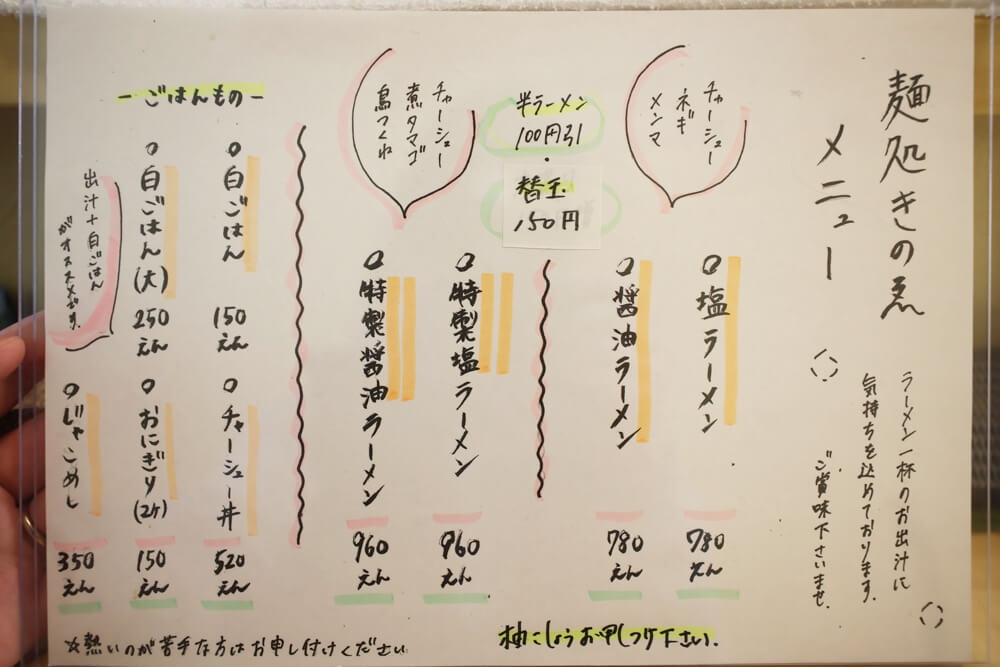 麺処きのゑ
メニュー
ラーメン一杯のお出汁に
気持ちを込めております。
ご賞味下さいませ。
チャーシュー
ネギ
メンマ
塩ラーメン
780
えん
醤油ラーメン
780
えん
半ラーメン
100円引
・
替玉
150円
チャーシュー
煮タマゴ
鳥つくね
特製塩ラーメン
960
えん
特製醤油ラーメン
960
えん
ーごはんものー
白ごはん
150
えん
白ごはん(大)
250
えん
出汁+白ごはん
がオススメです。
チャーシュー丼
520
えん
おにぎり(2ケ)
150
えん
じゃこめし
350
えん
柚こしょうお申しつけ下さい.
☆熱いのが苦手な方はお申し付けください